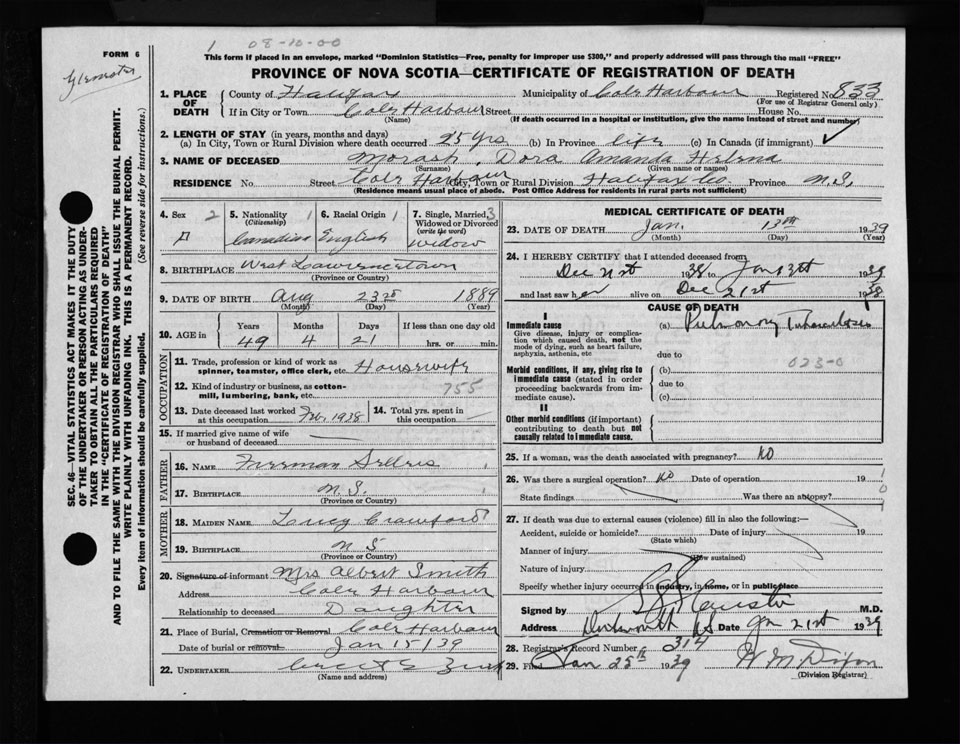 1 08-10-00
FORM 6
This form if placed in an envelope, marked "Dominion Statistics—Free, penalty for improper use $300," and properly addressed will pass through the mail "FREE"
PROVINCE OF NOVA SCOTIA—CERTIFICATE OF REGISTRATION OF DEATH
SEC. 46—VITAL STATISTICS ACT MAKES IT THE DUTY
OF THE UNDERTAKER OR PERSON ACTING AS UNDER-
TAKER TO OBTAIN ALL THE PARTICULARS REQUIRED
IN THE "CERTIFICATE OF REGISTRATION OF DEATH"
AND TO FILE THE SAME WITH THE DIVISION REGISTRAR WHO SHALL ISSUE THE BURIAL PERMIT.
WRITE PLAINLY WITH UNFADING INK. THIS IS A PERMANENT RECORD.
Every item of information should be carefully supplied. (See reverse side for instructions.)
1. PLACE OF DEATH County of Halifax Municipality of Cole Harbour Registered No. 833
(For use of Registrar General only)
If in City or Town Cole Harbour Street House No.
(Name) (If death occurred in a hospital or institution, give the name instead of street and number)
2. LENGTH OF STAY (in years, months and days)
(a) In City, Town or Rural Division where death occurred 25 yrs. (b) In Province life (c) In Canada (if immigrant)
3. NAME OF DECEASED Morash, Dora Amanda Helena
(Surname) (Given name or names)
RESIDENCE No. Street Cole Harbour City, Town or Rural Division Halifax Co. Province N.S.
(Residence means usual place of abode. Post Office Address for residents in rural parts not sufficient)
4. Sex 2 5. Nationality 1 6. Racial Origin 1 7. Single, Married, 3
(Citizenship) Widowed or Divorced
(write the word)
F Canadian English widow
8. BIRTHPLACE West Lawrencetown
(Province or Country)
9. DATE OF BIRTH Aug 23rd 1889
(Month) (Day) (Year)
10. AGE in Years Months Days If less than one day old
49 4 21 hrs. or min.
OCCUPATION
11. Trade, profession or kind of work as
spinner, teamster, office clerk, etc. Housewife
12. Kind of industry or business, as cotton-
mill, lumbering, bank, etc. 755
13. Date deceased last worked
at this occupation Feb, 1938 14. Total yrs. spent in
this occupation
15. If married give name of wife
or husband of deceased
FATHER
16. NAME Freeman Sellers
17. BIRTHPLACE N.S.
(Province or Country)
MOTHER
18. MAIDEN NAME Lucy Crawford
19. BIRTHPLACE N S
(Province or Country)
20. Signature of informant Mrs Albert Smith
Address Cole Harbour
Relationship to deceased Daughter
21. Place of Burial, Cremation or Removal Cole Harbour
Date of burial or removal Jan 15/39
22. UNDERTAKER
(Name and address)
MEDICAL CERTIFICATE OF DEATH
23. DATE OF DEATH Jan. 13th 1939
(Month) (Day) (Year)
24. I HEREBY CERTIFY that I attended deceased from
Dec 21st 1938 to Jan 13th 1939
and last saw her alive on Dec 21st 1938
CAUSE OF DEATH
I
Immediate cause (a) Pulmonary Tuberculosis
Give disease, injury or complica-
tion which caused death, not the
mode of dying, such as heart failure,
asphyxia, asthenia, etc due to
023-0
Morbid conditions, if any, giving rise to (b)
immediate cause (stated in order
proceeding backwards from im-
mediate cause). due to
(c)
II
Other morbid conditions (if important)
contributing to death but not
causally related to immediate cause.
25. If a woman, was the death associated with pregnancy? no
26. Was there a surgical operation? no Date of operation 19
State findings Was there an autopsy?
27. If death was due to external causes (violence) fill in also the following:—
Accident, suicide or homicide? Date of injury 19
(State which)
Manner of injury
(How sustained)
Nature of injury
Specify whether injury occurred in industry, in home, or in public place
Signed by M.D.
Address Dartmouth NS Date Jan 21st 1939
28. Registrar's Record Number 314
29. Filed Jan 25th 1939 W M Dixon
(Division Registrar)